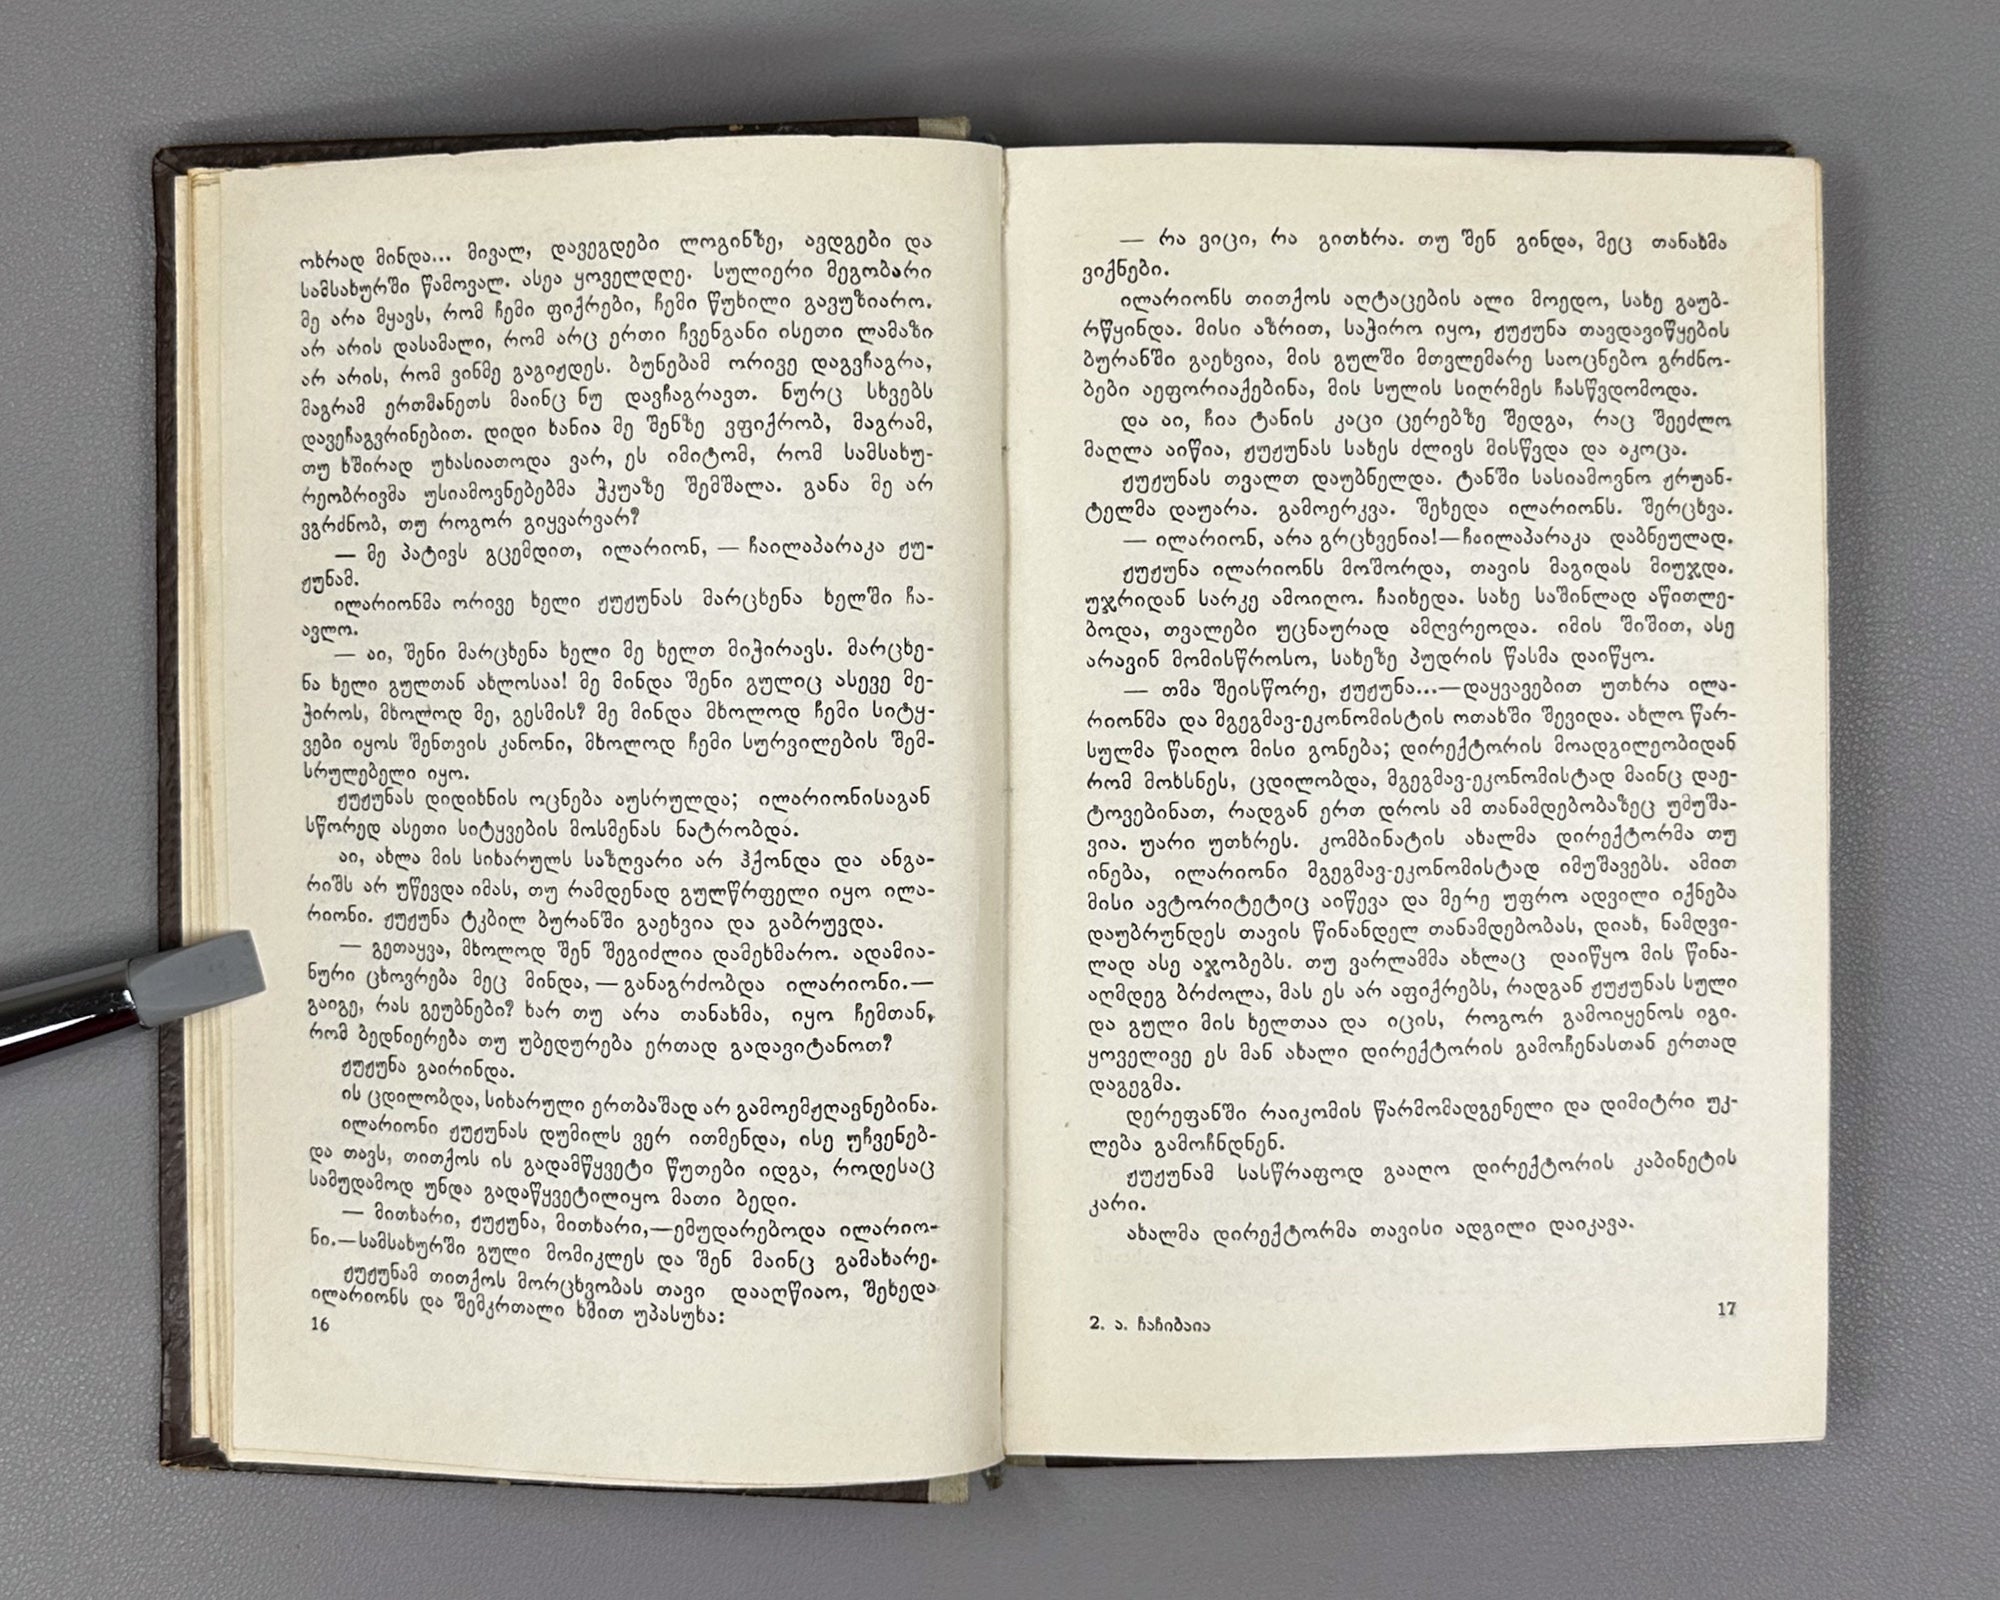 ოხრად მინდა... მივალ, დავეგდები ლოგინზე, ავდგები და
სამსახურში წამოვალ. ასეა ყოველდღე. სულიერი მეგობარი
მე არა მყავს, რომ ჩემი ფიქრები, ჩემი წუხილი გავუზიარო.
არ არის დასამალი, რომ არც ერთი ჩვენგანი ისეთი ლამაზი
არ არის, რომ ვინმე გაგიჟდეს. ბუნებამ ორივე დაგვჩაგრა,
მაგრამ ერთმანეთს მაინც ნუ დავჩაგრავთ. ნურც სხვებს
დავეჩაგვრინებით. დიდი ხანია მე შენზე ვფიქრობ, მაგრამ,
თუ ხშირად უხასიათოდა ვარ, ეს იმიტომ, რომ სამსახუ-
რეობრივმა უსიამოვნებებმა ჭკუაზე შემშალა. განა მე არ
ვგრძნობ, თუ როგორ გიყვარვარ?
— მე პატივს გცემდით, ილარიონ, — ჩაილაპარაკა ჟუ-
ჟუნამ.
ილარიონმა ორივე ხელი ჟუჟუნას მარცხენა ხელში ჩა-
ავლო.
— აი, შენი მარცხენა ხელი მე ხელთ მიჭირავს. მარცხე-
ნა ხელი გულთან ახლოსაა! მე მინდა შენი გულიც ასევე მე-
ჭიროს, მხოლოდ მე, გესმის? მე მინდა მხოლოდ ჩემი სიტყ-
ვები იყოს შენთვის კანონი, მხოლოდ ჩემი სურვილების შემ-
სრულებელი იყო.
ჟუჟუნას დიდიხნის ოცნება აუსრულდა; ილარიონისაგან
სწორედ ასეთი სიტყვების მოსმენას ნატრობდა.
აი, ახლა მის სიხარულს საზღვარი არ ჰქონდა და ანგა-
რიშს არ უწევდა იმას, თუ რამდენად გულწრფელი იყო ილა-
რიონი. ჟუჟუნა ტკბილ ბურანში გაეხვია და გაბრუვდა.
— გეთაყვა, მხოლოდ შენ შეგიძლია დამეხმარო. ადამია-
ნური ცხოვრება მეც მინდა, — განაგრძობდა ილარიონი.—
გაიგე, რას გეუბნები? ხარ თუ არა თანახმა, იყო ჩემთან,
რომ ბედნიერება თუ უბედურება ერთად გადავიტანოთ?
ჟუჟუნა გაირინდა.
ის ცდილობდა, სიხარული ერთბაშად არ გამოემჟღავნებინა.
ილარიონი ჟუჟუნას დუმილს ვერ ითმენდა, ისე უჩვენებ-
და თავს, თითქოს ის გადამწყვეტი წუთები იდგა, როდესაც
სამუდამოდ უნდა გადაწყვეტილიყო მათი ბედი.
— მითხარი, ჟუჟუნა, მითხარი,—ემუდარებოდა ილარიო-
ნი.—სამსახურში გული მომიკლეს და შენ მაინც გამახარე.
ჟუჟუნამ თითქოს მორცხვობას თავი დააღწიაო, შეხედა
ილარიონს და შემკრთალი ხმით უპასუხა:
16
— რა ვიცი, რა გითხრა. თუ შენ გინდა, მეც თანახმა
ვიქნები.
ილარიონს თითქოს აღტაცების ალი მოედო, სახე გაუბ-
რწყინდა. მისი აზრით, საჭირო იყო, ჟუჟუნა თავდავიწყების
ბურანში გაეხვია, მის გულში მთვლემარე საოცნებო გრძნო-
ბები აეფორიაქებინა, მის სულის სიღრმეს ჩასწვდომოდა.
და აი, ჩია ტანის კაცი ცერებზე შედგა, რაც შეეძლო
მაღლა აიწია, ჟუჟუნას სახეს ძლივს მისწვდა და აკოცა.
ჟუჟუნას თვალთ დაუბნელდა. ტანში სასიამოვნო ჟრუან-
ტელმა დაუარა. გამოერკვა. შეხედა ილარიონს. შერცხვა.
— ილარიონ, არა გრცხვენია!—ჩაილაპარაკა დაბნეულად.
ჟუჟუნა ილარიონს მოშორდა, თავის მაგიდას მიუჯდა.
უჯრიდან სარკე ამოიღო. ჩაიხედა. სახე საშინლად აწითლე-
ბოდა, თვალები უცნაურად ამღვრეოდა. იმის შიშით, ასე
არავინ მომისწროსო, სახეზე პუდრის წასმა დაიწყო.
— თმა შეისწორე, ჟუჟუნა...—დაყვავებით უთხრა ილა-
რიონმა და მგეგმავ-ეკონომისტის ოთახში შევიდა. ახლო წარ-
სულმა წაიღო მისი გონება; დირექტორის მოადგილეობიდან
რომ მოხსნეს, ცდილობდა, მგეგმავ-ეკონომისტად მაინც დაე-
ტოვებინათ, რადგან ერთ დროს ამ თანამდებობაზეც უმუშა-
ვია. უარი უთხრეს. კომბინატის ახალმა დირექტორმა თუ
ინება, ილარიონი მგეგმავ-ეკონომისტად იმუშავებს. ამით
მისი ავტორიტეტიც აიწევა და მერე უფრო ადვილი იქნება
დაუბრუნდეს თავის წინანდელ თანამდებობას, დიახ, ნამდვი-
ლად ასე აჯობებს. თუ ვარლამმა ახლაც დაიწყო მის წინა-
აღმდეგ ბრძოლა, მას ეს არ აფიქრებს, რადგან ჟუჟუნას სული
და გული მის ხელთაა და იცის, როგორ გამოიყენოს იგი.
ყოველივე ეს მან ახალი დირექტორის გამოჩენასთან ერთად
დაგეგმა.
დერეფანში რაიკომის წარმომადგენელი და დიმიტრი უკ-
ლება გამოჩნდნენ.
ჟუჟუნამ სასწრაფოდ გააღო დირექტორის კაბინეტის
კარი.
ახალმა დირექტორმა თავისი ადგილი დაიკავა.
2. ა. ჩაჩიბაია
17